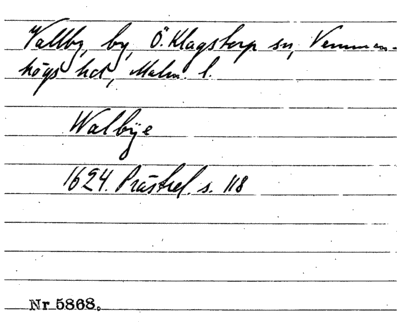 Vallby, by, Ö. Klagstorp sn, Vemmen-
högs hd, Malm. l.
Walbÿe
1624. Prästrel. s. 118
Nr 5868.